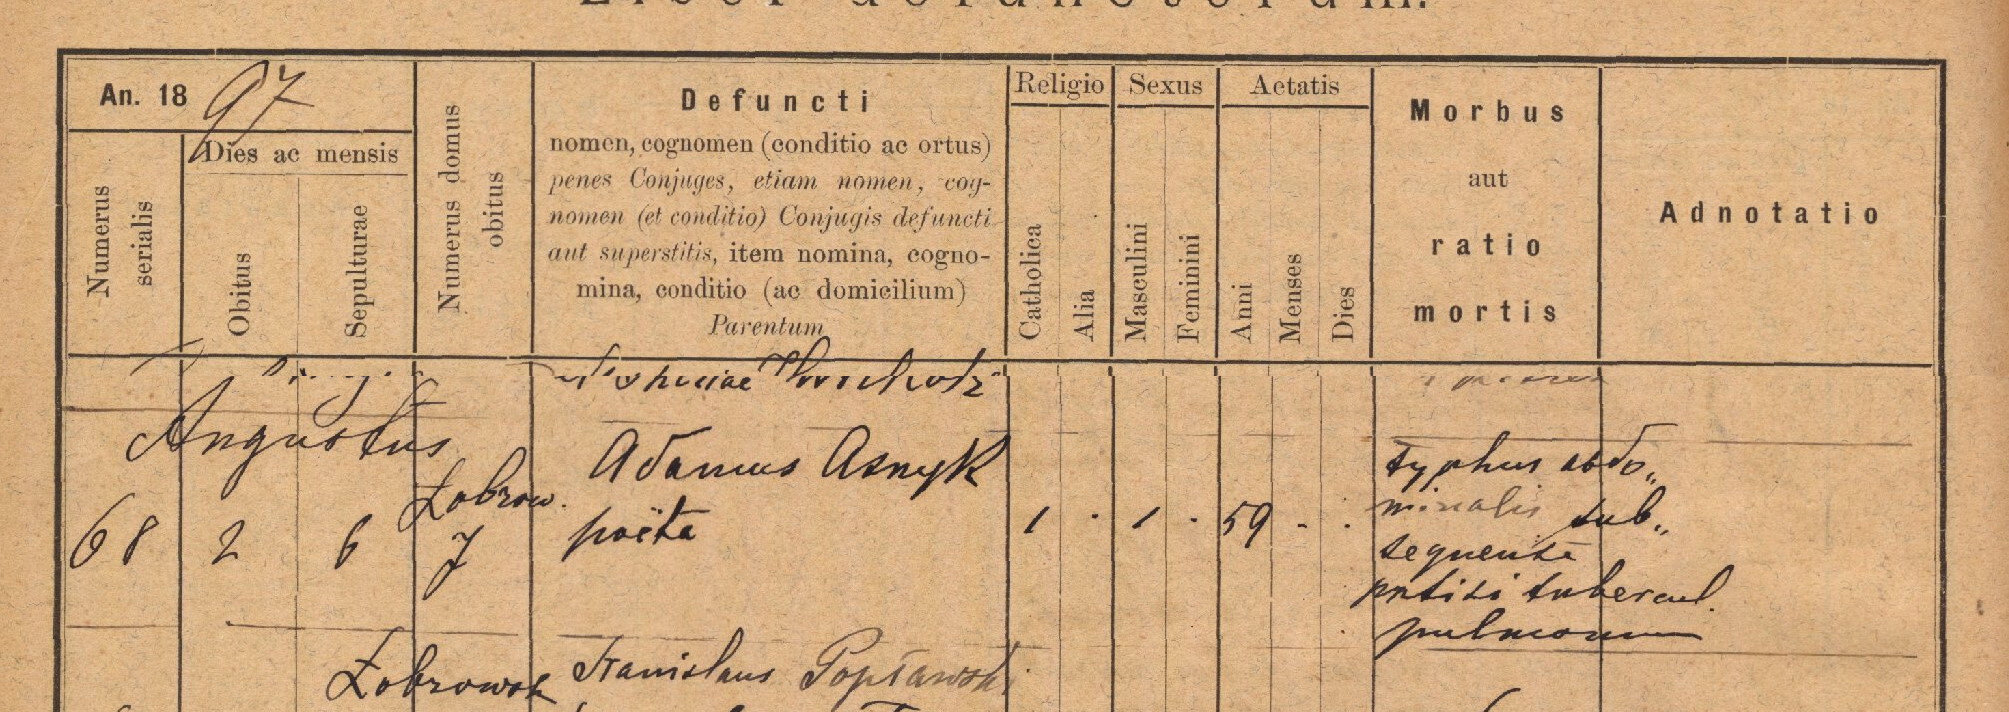 Liber defunctorum.
An. 1897
Numerus serialis
Dies ac mensis
Obitus
Sepulturae
Numerus domus obitus
Defuncti
nomen, cognomen (conditio ac ortus)
penes Conjuges, etiam nomen, cog-
nomen (et conditio) Conjugis defuncti
aut superstitis, item nomina, cogno-
mina, conditio (ac domicilium)
Parentum
Religio
Catholica
Alia
Sexus
Masculini
Feminini
Aetatis
Anni
Menses
Dies
Morbus
aut
ratio
mortis
Adnotatio
Augustus
68 2 6
Łobrow.
7
Adamus Asnyk
poëta
1 . 1 . 59 - .
typhus abdo„
minalis sub„
sequente
phtisi tubercul.
pulmonum
Łobrowsk
Stanislaus Popławski